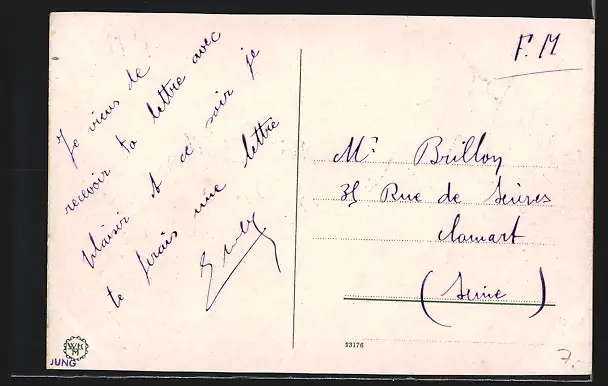 Je viens de
recevoir ta lettre avec
plaisir et ce soir je
te ferais une lettre
F. M
Mr Brillon
35 Rue de Sèvres
Clamart
(Seine)
23176
JUNG
7.-